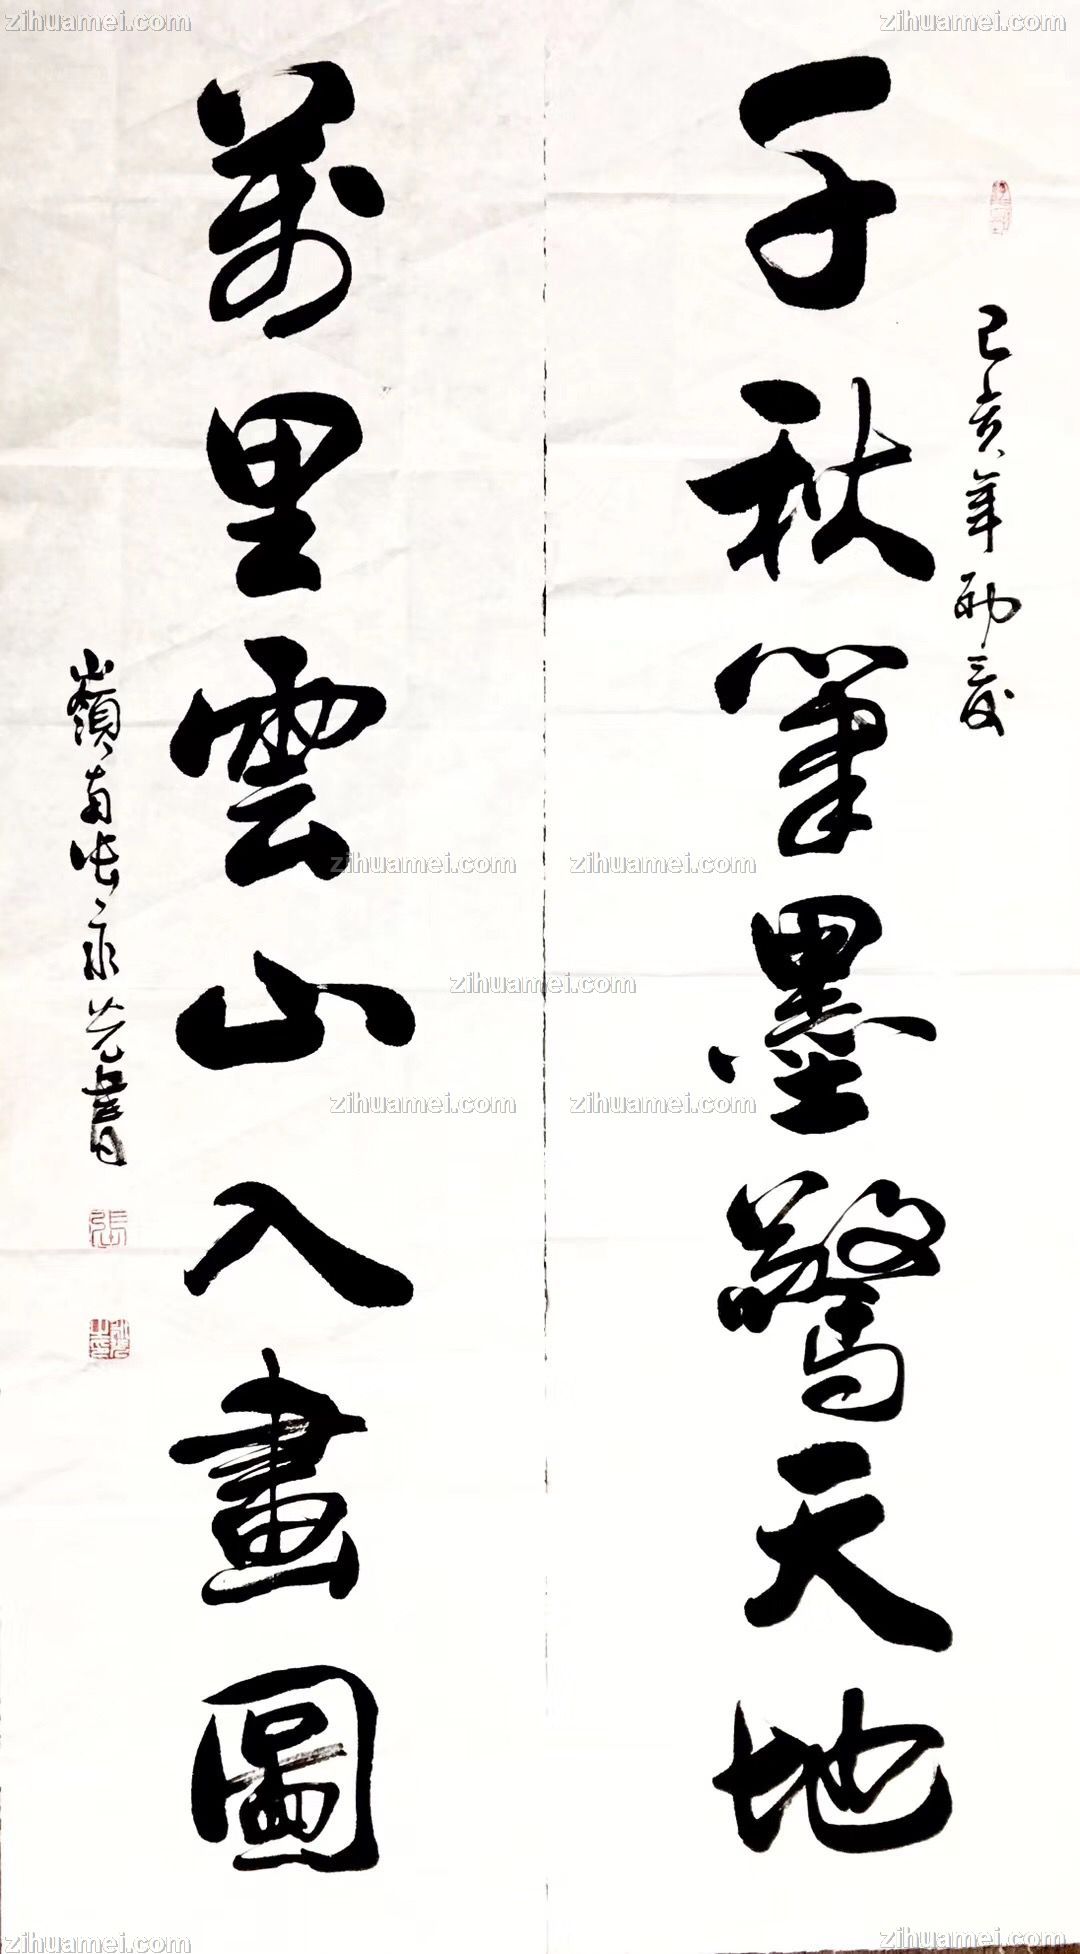 己亥年初夏
千秋筆墨驚天地
萬里雲山入畫圖
嶺南張永光書
張
zihuamei.com
zihuamei.com
zihuamei.com
zihuamei.com
zihuamei.com
zihuamei.com
zihuamei.com
zihuamei.com
zihuamei.com